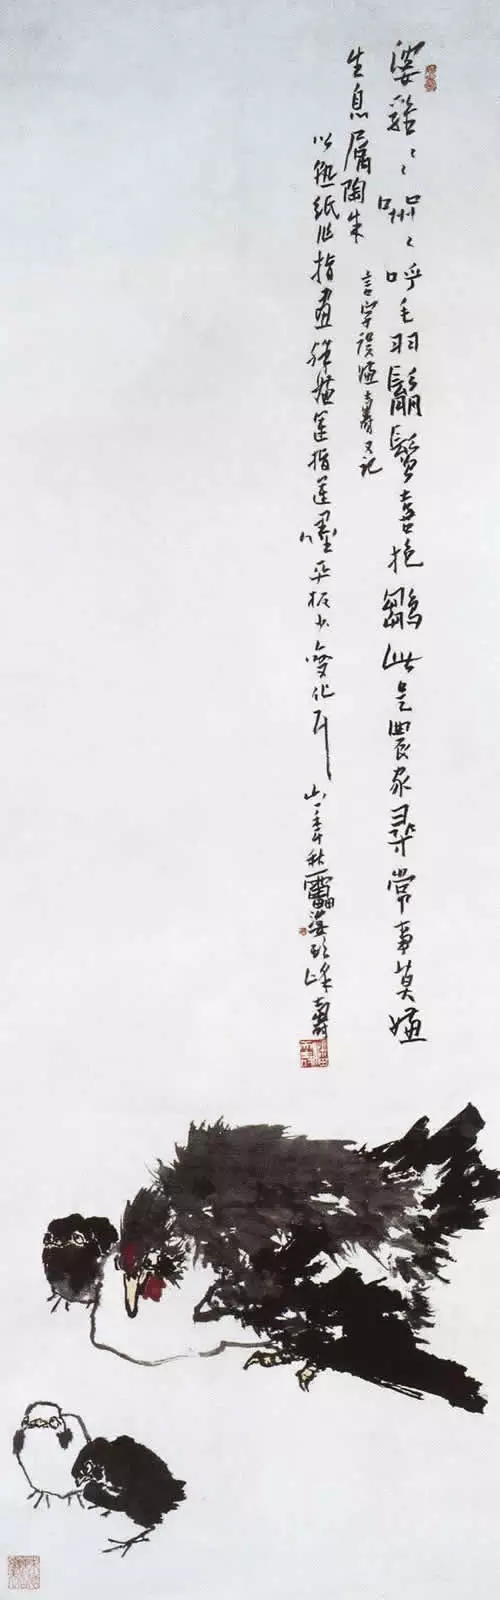 婆雞〻喌〻呼毛羽鬅鬙喜抱雛此是農家尋常事莫嫌
生息屬陶朱
言字誤嫌壽又記
以熟紙作指畫殊嫌運指運墨平板少變化耳
秋雷婆頭峰壽